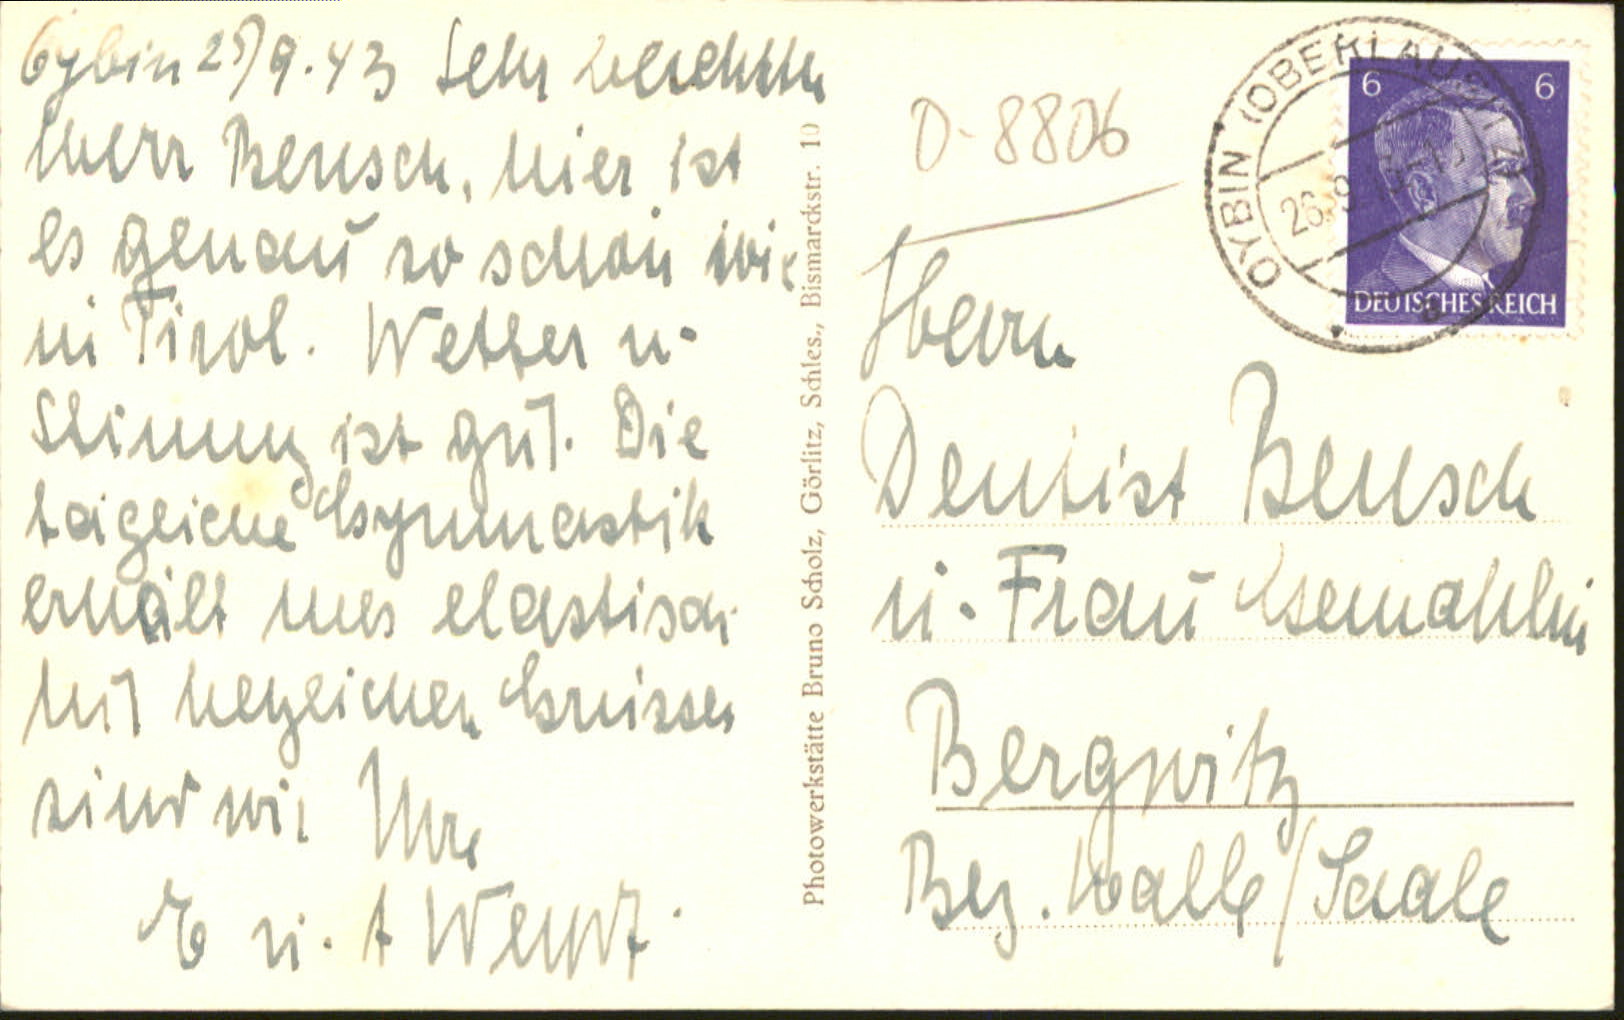 Oybin 25/9.43 Sehr verehrter
Herr Bensch, hier ist
es genau so schön wie
in Tirol. Wetter u.
Stimmung ist gut. Die
tägliche Gymnastik
erhält uns elastisch
Mit herzlichen Grüssen
sind wir Ihre
E u. A
Photowerkstätte Bruno Scholz, Görlitz, Schles., Bismarckstr. 10
D-8806
OYBIN (OBERLAUSITZ)
26.9.
6 6
DEUTSCHES REICH
Herrn
Dentist Bensch
u. Frau Gemahlin
Bergwitz
Bez. Halle/Saale